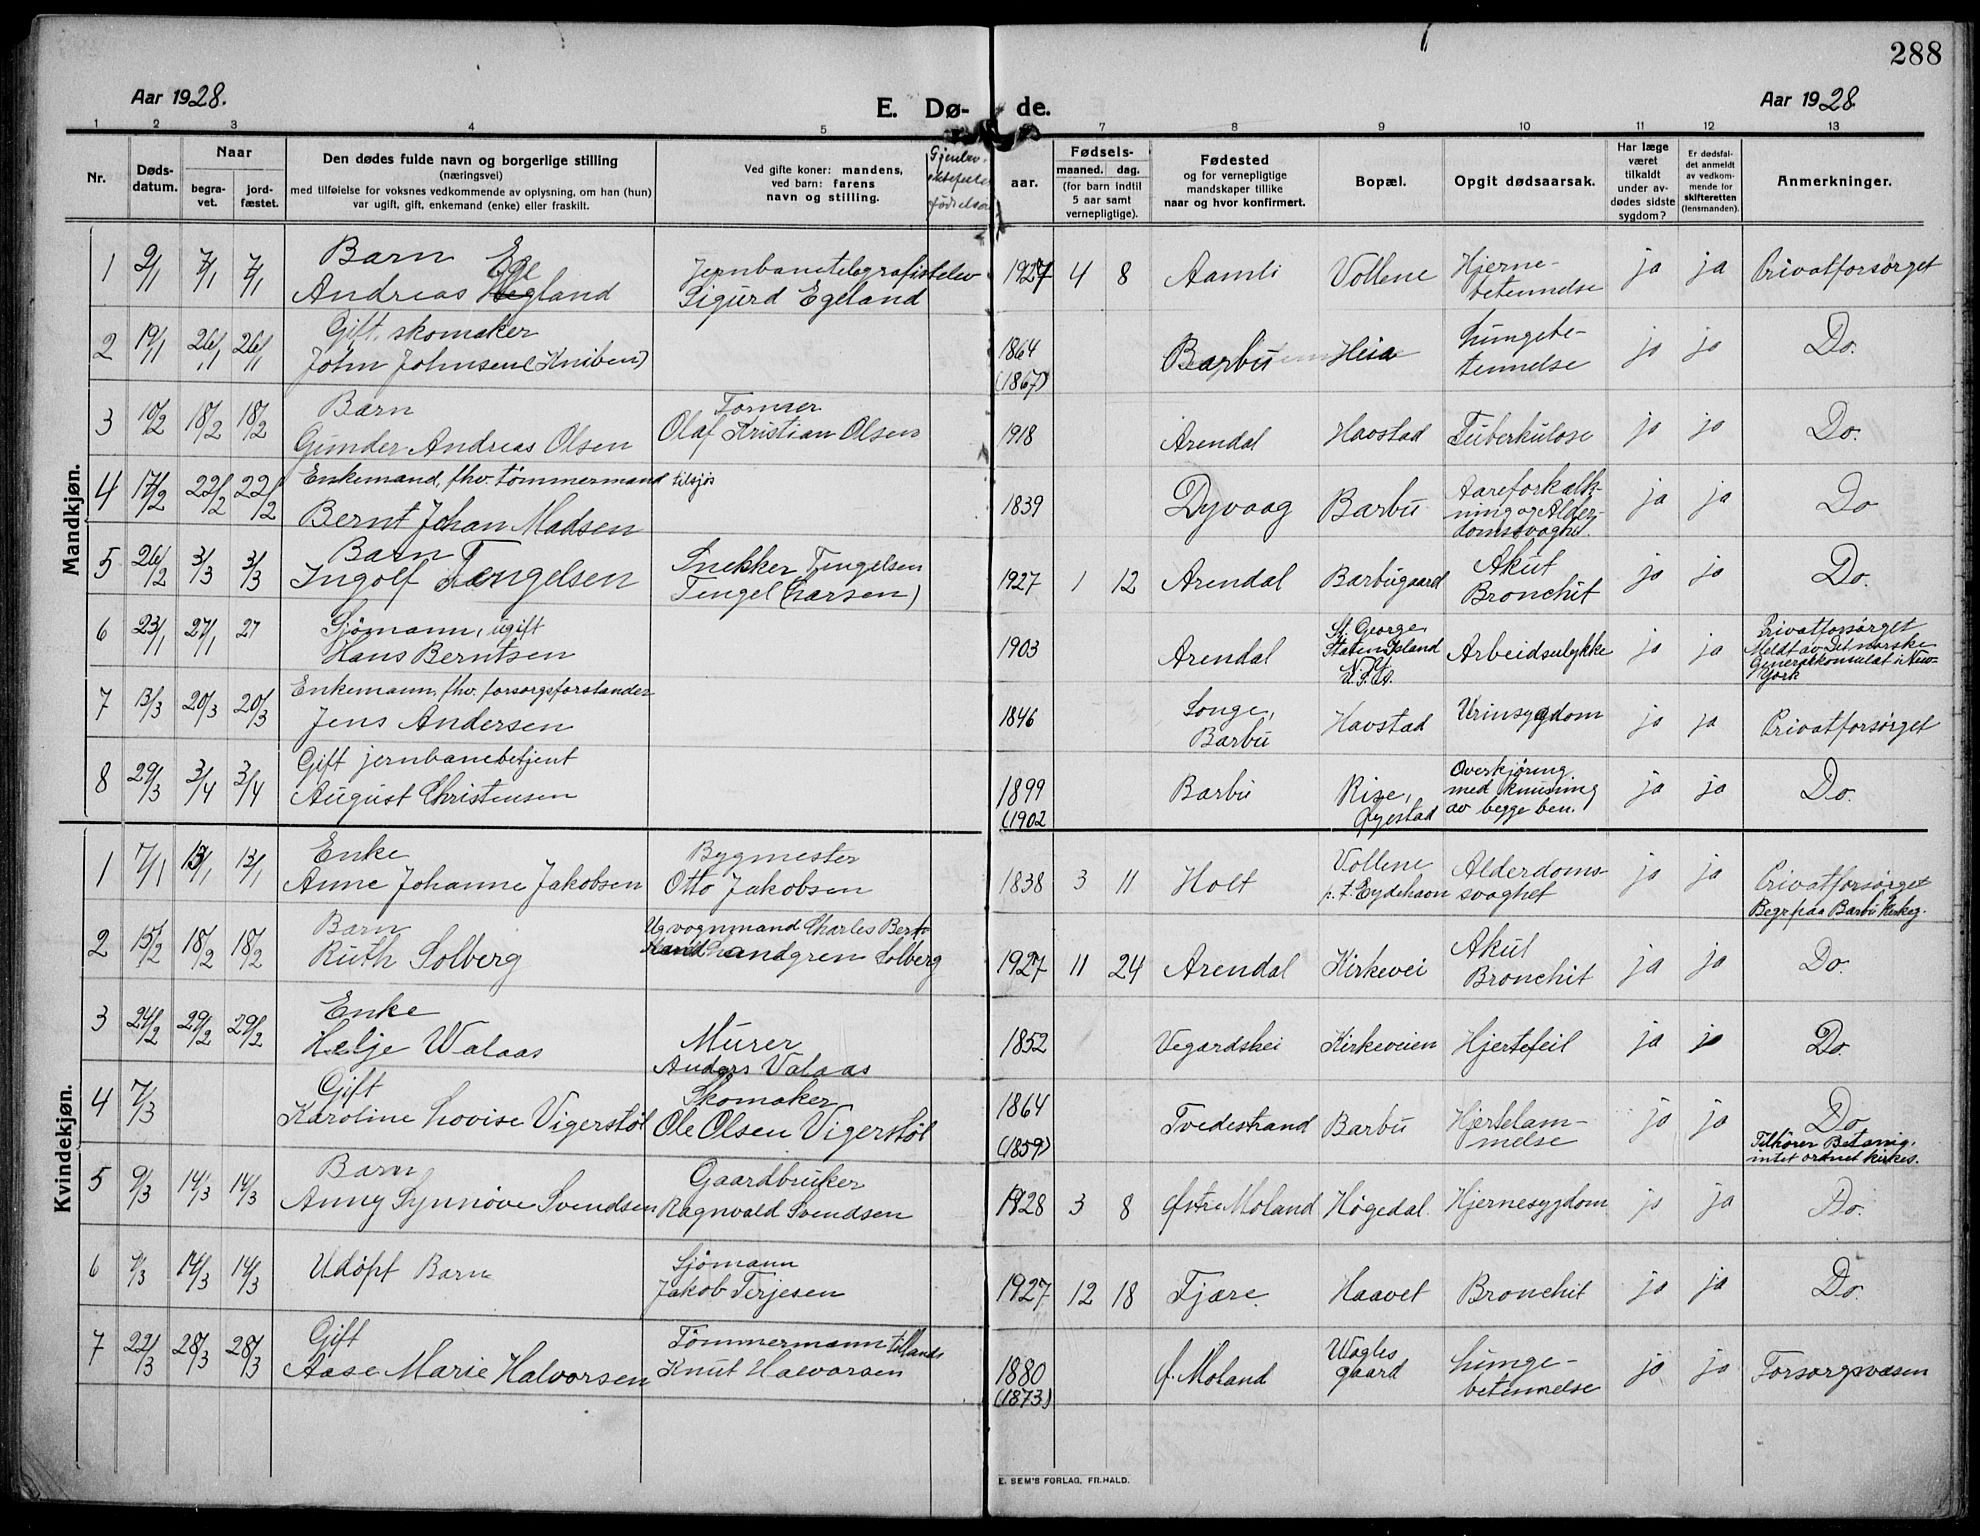 288
Aar 1928.
E. Dø- de.
Aar 1928.
1 2 3 4 5 7 8 9 10 11 12 13
Nr.
Døds-
datum.
Naar
begra-
vet.
jord-
fæstet.
Den dødes fulde navn og borgerlige stilling
(næringsvei)
med tilføielse for voksnes vedkommende av oplysning, om han (hun)
var ugift, gift, enkemand (enke) eller fraskilt.
Ved gifte koner: mandens,
ved barn: farens
navn og stilling.
Gjenlev.
ektefælles
fødselsaar
aar.
Fødsels-
maaned. dag.
(for barn indtil
5 aar samt
vernepligtige).
Fødested
og for vernepligtige
mandskaper tillike
naar og hvor konfirmert.
Bopæl.
Opgit dødsaarsak.
Har læge
været
tilkaldt
under av-
dødes sidste
sygdom?
Er dødsfal-
det anmeldt
av vedkom-
mende for
skifteretten
(lensmanden).
Anmerkninger.
Mandkjøn.
1 2/1 7/1 7/1 Barn
Andreas Egeland
Jernbanetelegrafistelev
Sigurd Egeland
1927 4 8 Aamli Vollene Hjerne-
betennelse ja ja Privatforsørget
2 19/1 26/1 26/1 Gift, skomaker
John Johnsen (Kniben)
1864
(1867) Barbu Hisø Lungebe-
tennelse ja ja Do.
3 10/2 18/2 18/2 Barn
Gunder Andreas Olsen
Formær
Olaf Kristian Olsen
1918 Arendal Havstad Tuberkulose ja ja Do.
4 17/2 22/2 22/2 Enkemand, fhv. tømmermand tilsjøs
Bernt Johan Madsen
1839 Dyvaag Barbu Aareforkalk-
ning og Alder-
domssvaghet. ja ja Do
5 26/2 3/3 3/3 Barn
Ingolf Tengelsen
Snekker Tengelsen
Tengel (Larsen)
1927 1 12 Arendal Barbugaard Akut
Bronchit ja ja Do.
6 23/1 27/1 27 Sjømann, ugift
Hans Berntsen
1903 Arendal St. George,
Staten Island
N.Y. Arbeidsulykke ja ja Privatforsørget
Meldt av Det norske
Generalkonsulat i New-
York
7 13/3 20/3 20/3 Enkemann, fhv. forsorgsforstander
Jens Andersen
1846 Songe,
Barbu Havstad Urinsygdom ja ja Privatforsørget
8 29/3 3/4 3/4 Gift jernbanebetjent
August Christensen
1899
(1902 Barbu Rise,
Øyestad Overkjøring
med knusning
av begge ben. ja ja Do.
Kvindekjøn.
1 7/1 13/1 13/1 Enke
Anne Johanne Jakobsen
Bygmester
Otto Jakobsen
1838 3 11 Holt Vollene
p.t. Eydehavn Alderdoms-
svaghet ja ja Privatforsørget
Begr. paa Barbu Kirkeg.
2 15/2 18/2 18/2 Barn
Ruth Solberg
Ug. vognmand Charles
Landgren Solberg
1927 11 24 Arendal Kirkevei Akut
Bronchit ja ja Do.
3 24/2 29/2 29/2 Enke
Helje Walaas
Murer
Anders Valaas
1852 Vegardshei Kirkeveien Hjertefeil ja ja Do.
4 7/3 Gift
Karoline Lovise Vigerstøl
Skomaker
Ole Olsen Vigerstøl
1864
(1859) Tvedestrand Barbu Hjertelam-
melse ja ja Do
Tilhører Betania,
intet ordnet kirkes.
5 9/3 14/3 14/3 Barn
Anny Synnøve Svendsen
Gaardbruker
Ragnvald Svendsen
1928 3 8 Østre Moland Høgedal. Hjernesygdom ja ja Do.
6 9/3 14/3 14/3 Udøpt Barn
Sjømann
Jakob Terjesen
1927 12 18 Fjære. Haavet Bronchit ja ja Do.
7 22/3 28/3 28/3 Gift
Aase Marie Halvorsen
Tømmermann tillands
Knut Halvorsen
1880
(1873) Ø. Moland Wagles
gaard Lunge-
betennelse ja ja Forsorgsvæsen
E. SEM'S FORLAG, FR.HALD.